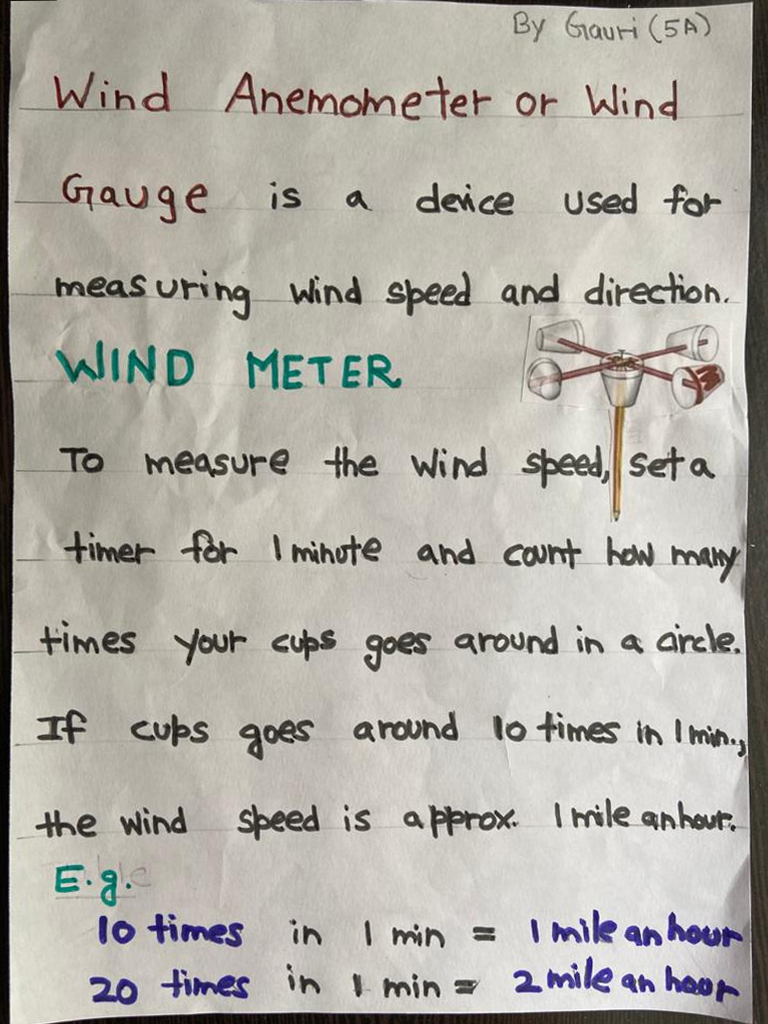 By Gauri (5A)
Wind Anemometer or Wind
Gauge is a device used for
measuring wind speed and direction.
WIND METER
To measure the wind speed, set a
timer for 1 minute and count how many
times your cups goes around in a circle.
If cups goes around 10 times in 1 min.,
the wind speed is approx. 1 mile an hour.
E.g.
10 times in 1 min = 1 mile an hour
20 times in 1 min = 2 mile an hour